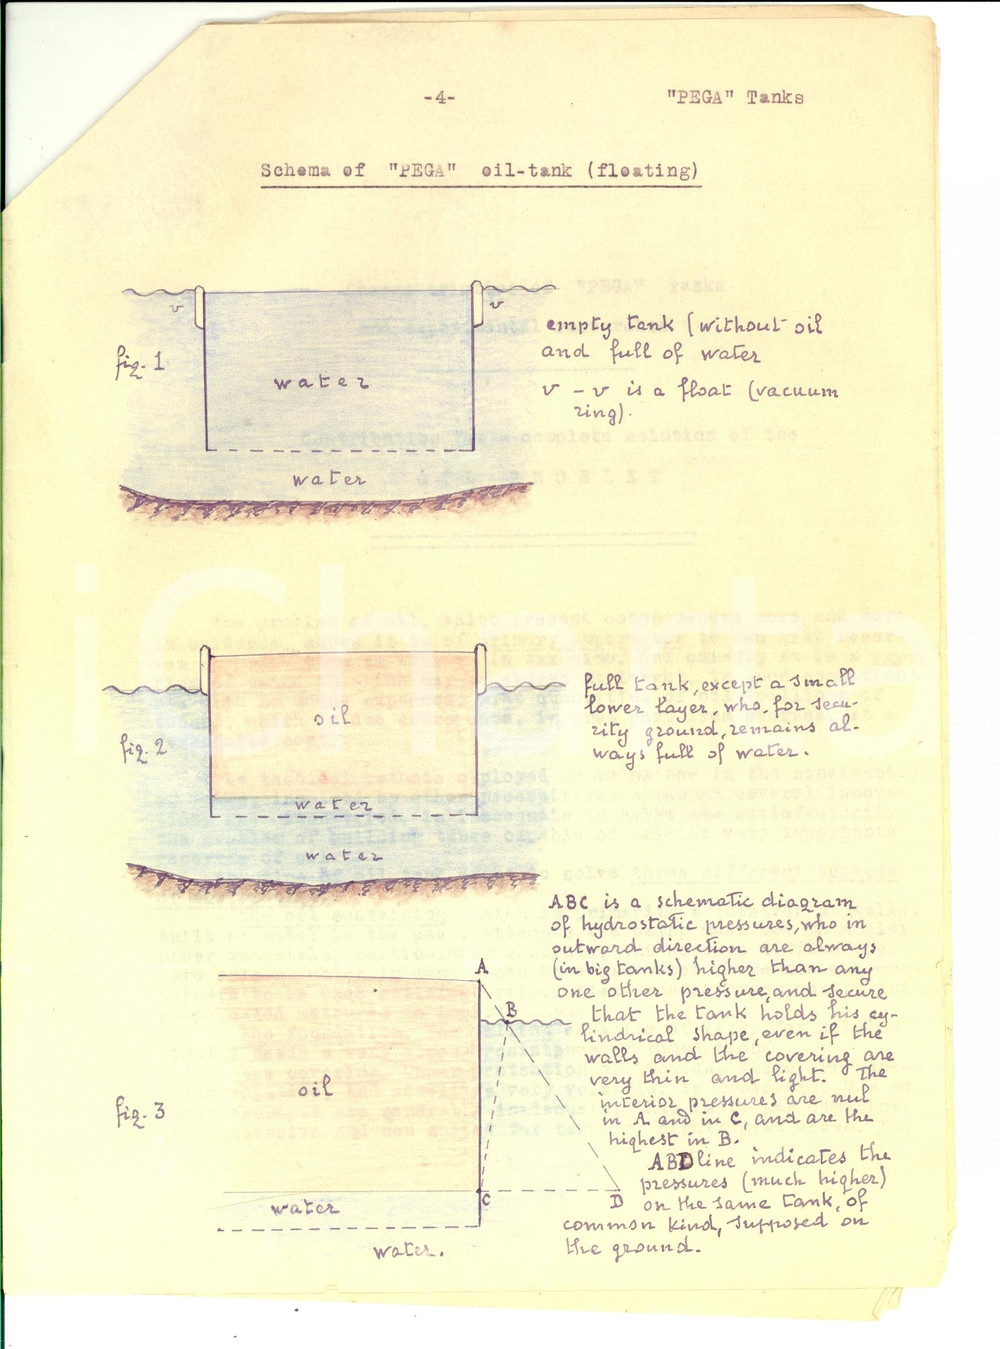 -4-
"PEGA" Tanks
Schema of "PEGA" oil-tank (floating)
v
v
fig. 1
water
water
empty tank (without oil
and full of water
v - v is a float (vacuum
ring).
oil
fig. 2
water
water
full tank, except a small
lower layer, who, for secu-
rity ground, remains al-
ways full of water.
ABC is a schematic diagram
of hydrostatic pressures, who in
outward direction are always
(in big tanks) higher than any
one other pressure, and secure
that the tank holds his cy-
lindrical shape, even if the
walls and the covering are
very thin and light. The
interior pressures are nul
in A and in C, and are the
highest in B.
ABD line indicates the
pressures (much higher)
on the same tank, of
common kind, supposed on
the ground.
A
B
oil
fig. 3
C
D
water
water.